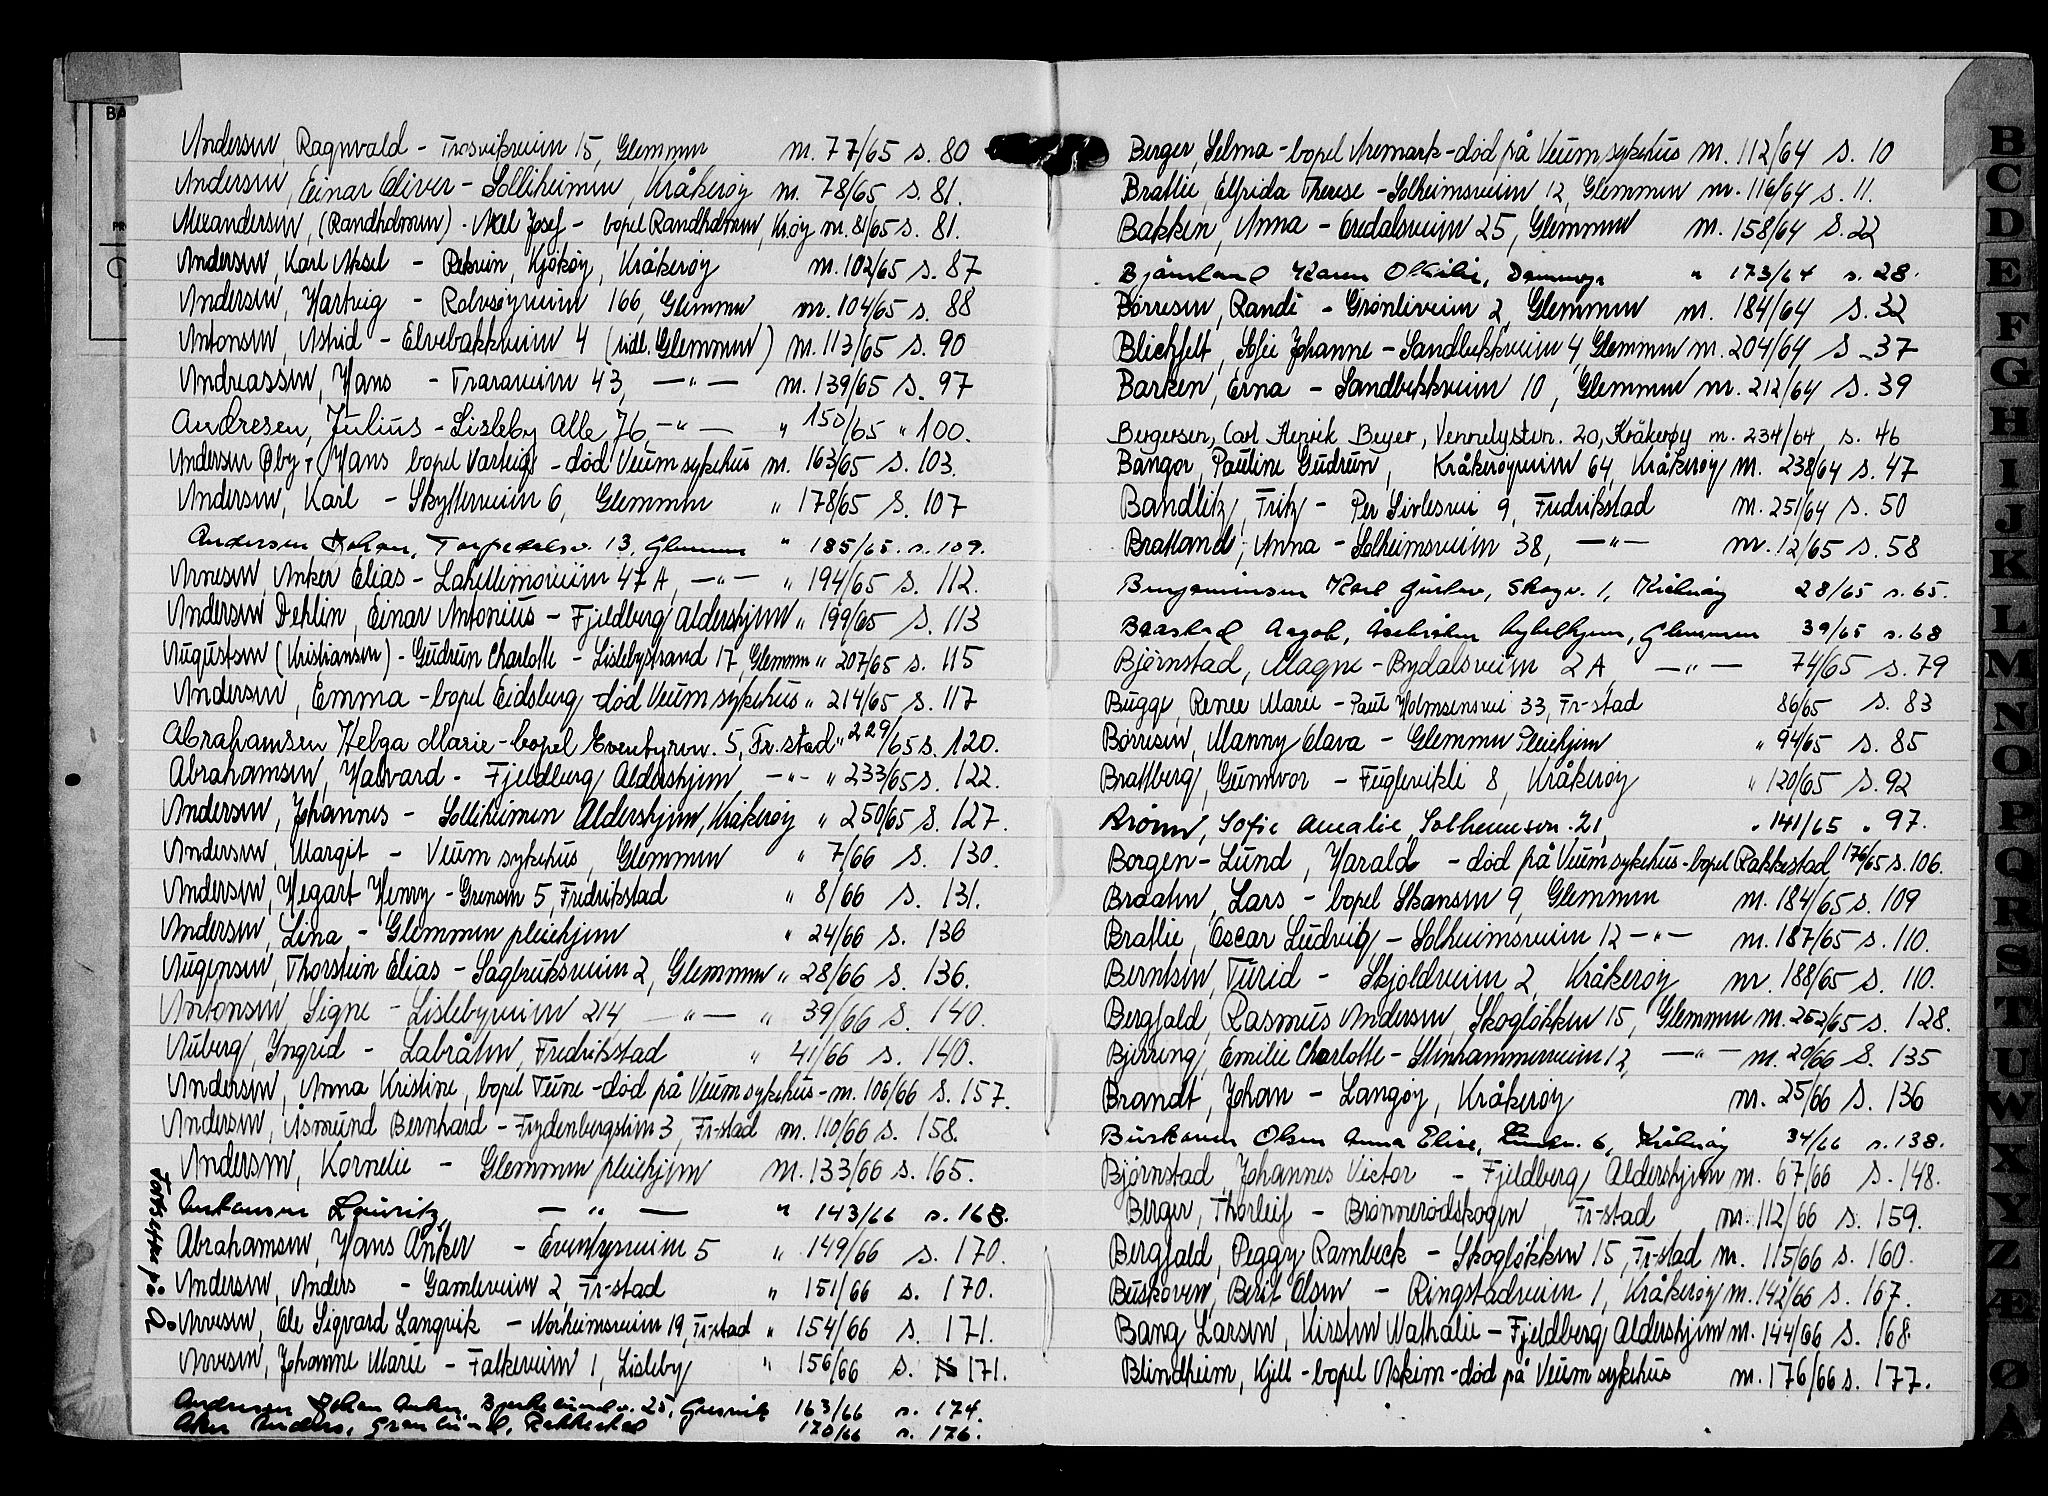 Andersen, Ragnvald - Trosvikveien 15, Glemmen nr. 77/65 s. 80
Andersen, Einar Oliver - Solliheimen, Kråkerøy nr. 78/65 s. 81.
Alexandersen, (Randholmen) - Aksel Josef - bopel Randholmen, Krøy nr. 81/65 s. 81.
Andersen, Karl Aksel - Rekvin, Kjøkøy, Kråkerøy nr. 102/65 s. 87
Andersen, Hartvig - Rolvsøyveien 166, Glemmen nr. 104/65 s. 88
Antonsen, Astrid - Elvebakkveien 4 (tidl. Glemmen) nr. 113/65 s. 90
Andreassen, Hans - Traraveien 43, —"— nr. 139/65 s. 97
Andresen, Julius - Lisleby Alle 76, —"— " 150/65 " 100.
Andersen Øby, Hans bopel Varteig - død Veum sykehus nr. 163/65 s. 103.
Andersen, Karl - Skytterveien 6, Glemmen " 178/65 s. 107
Andersen Johan, Torpedalsv. 13, Glemmen " 185/65. s. 109.
Arnesen, Anker Elias - Lahellemoveien 47 A, —"— " 194/65 s. 112.
Andersen Dehlin, Einar Antonius - Fjeldberg Aldershjem " 199/65 s. 113
Augustsen (Kristiansen) - Gudrun Charlotte - Lislebystrand 17, Glemmen " 207/65 s. 115
Andersen, Emma - bopel Eidsberg - død Veum sykehus " 214/65 s. 117
Abrahamsen Helga Marie - bopel Eventyrvn. 5, Fr.stad " 229/65 s. 120.
Abrahamsen, Halvard - Fjeldberg Aldershjem —"— " 233/65 s. 122.
Andersen, Johannes - Solliheimen Aldershjem, Kråkerøy " 250/65 s. 127.
Andersen, Margit - Veum sykehus, Glemmen " 7/66 s. 130.
Andersen, Hegart Henry - Grensen 5, Fredrikstad " 8/66 s. 131.
Andersen, Lina - Glemmen pleiehjem " 24/66 s. 136
Augensen, Thorstein Elias - Sagbruksveien 2, Glemmen " 28/66 s. 136.
Antonsen, Signe - Lislebyveien 214, —"— " 39/66 s. 140.
Auberg, Yngrid - Labråten, Fredrikstad " 41/66 s. 140.
Andersen, Anna Kristine, bopel Tune - død på Veum sykehus - nr. 106/66 s. 157.
Andersen, Åsmund Bernhard - Frydenbergstien 3, Fr-stad nr. 110/66 s. 158.
Andersen, Kornelie - Glemmen pleiehjem nr. 133/66 s. 165.
Lauritz, —"— " 143/66 s. 168.
Abrahamsen, Hans Anker - Eventyrveien 5 " 149/66 s. 170.
Andersen, Anders - Gamleveien 2 Fr-stad " 151/66 s. 170.
Arvesen, Ole Sigvard Langvik - Norheimsveien 19, Fr-stad " 154/66 s. 171.
Arvesen, Johanne Marie - Falkeveien 1, Lisleby " 156/66 s. 171.
Andersen Johan Anker Bjørkelundv. 25, Gressvik 163/66 s. 174.
Aker Anders, Granlund, Rakkestad 170/66 s. 176.
Fortsettes på Å
Berger, Selma - bopel Aremark - død på Veum sykehus nr. 112/64 s. 10
Bratlie, Elfrida Therese - Solheimsveien 12, Glemmen nr. 116/64 s. 11.
Bakken, Anna - Oredalsveien 25, Glemmen nr. 158/64 s. 22
Bjørnland Karen Othilie, " 173/64 s. 28.
Børresen, Randi - Grønliveien 2, Glemmen nr. 184/64 s. 32
Blichfelt, Sofie Johanne - Sandbekkveien 4, Glemmen nr. 204/64 s. 37
Barken, Erna - Sandbekkveien 10, Glemmen nr. 212/64 s. 39
Bergersen, Carl Henrik Beyer, Vennelystvn. 20, Kråkerøy nr. 234/64, s. 46
Bangor, Pauline Gudrun, Kråkerøyveien 64, Kråkerøy nr. 238/64 s. 47
Bandlitz, Fritz - Per Sivlesvei 9, Fredrikstad nr. 251/64 s. 50
Bratland, Anna - Solheimsveien 38, —"— nr. 12/65 s. 58
Benjaminsen Karl Gustav, Skogv. 1, Kråkerøy 28/65 s. 65.
Baastad Aagot, Glemmen 39/65 s. 68
Bjørnstad, Magne - Bydalsveien 2 A, —"— 74/65 s. 79
Bugge, Renee Marie - Paul Holmsensvei 33, Fr-stad 86/65 s. 83
Børresen, Nanny Clava - Glemmen Pleiehjem " 94/65 s. 85
Brattberg, Gunnvor - Fuglevikli 8, Kråkerøy " 120/65 s. 92
Brønn, Sofie Amalie, Solheimsvn. 21, " 141/65 " 97.
Borgen-Lund, Harald - død på Veum sykehus - bopel Rakkestad 176/65 s. 106.
Braaten, Lars - bopel Skansen 9, Glemmen nr. 184/65 s. 109
Bratlie, Oscar Ludvig - Solheimsveien 12 —"— nr. 187/65 s. 110.
Berntsen, Turid - Skjoldveien 2, Kråkerøy nr. 188/65 s. 110.
Bergfald, Rasmus Andersen, Skogløkken 15, Glemmen nr. 252/65 s. 128.
Bjerring, Emilie Charlotte - Stenhammerveien 12, —"— nr. 20/66 s. 135
Brandt, Johan - Langøy, Kråkerøy nr. 25/66 s. 136
Buskoven Olsen Anna Elise, 6, Kråkerøy 34/66 s. 138.
Bjørnstad, Johannes Victor - Fjeldberg Aldershjem nr. 67/66 s. 148.
Berger, Thorleif - Brønnerødskogen, Fr-stad nr. 112/66 s. 159.
Bergfald, Peggy Rambeck - Skogløkken 15, Fr-stad nr. 115/66 s. 160.
Buskoven, Berit Olsen - Ringstadveien 1, Kråkerøy nr. 142/66 s. 167.
Bang Larsen, Kirsten Nathalie - Fjeldberg Aldershjem nr. 144/66 s. 168
Blindheim, Kjell - bopel Askim - død på Veum sykehus nr. 176/66 s. 177.
B
C
D
E
F
G
H
I
J
K
L
M
N
O
P
Q
R
S
T
U
W
X
Y
Z
Æ
Ø
Å